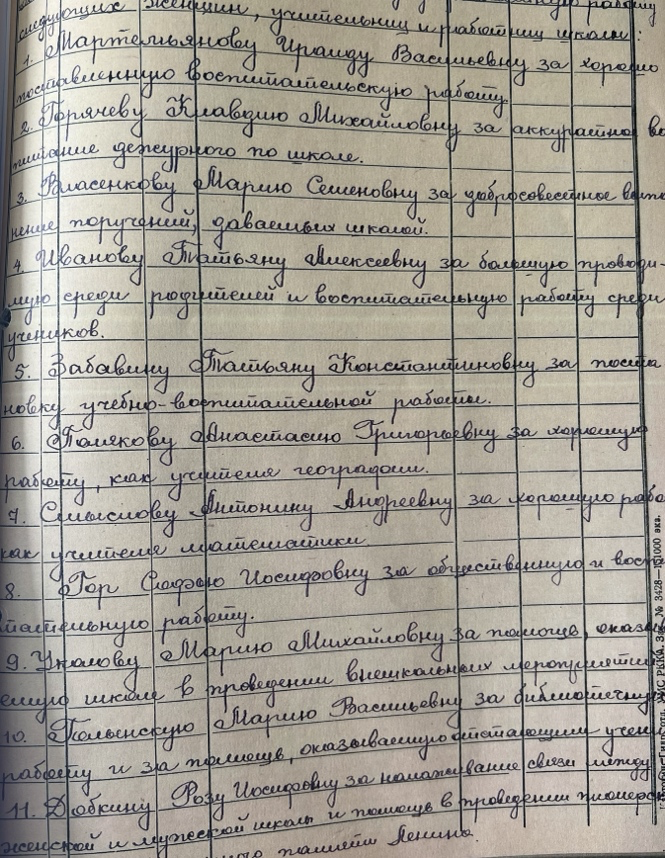 следующих женщин, учительниц и работниц школы:
1. Мартемьянову Ираиду Васильевну за хорошо
поставленную воспитательскую работу
2. Горячеву Клавдию Михайловну за аккуратное
дежурного по школе.
3. Власенкову Марию Семеновну за добросовестное выпол
нение поручений, даваемых школой.
4. Иванову Татьяну Алексеевну за большую проводи-
мую среди родителей и воспитательную работу среди
учеников.
5. Забавину Татьяну Константиновну за поста
новку учебно-воспитательной работы.
6. Полякову Анастасию Григорьевну за хорошую
работу, как учителя географии.
7. Смыслову Антонину Андреевну за хорошую рабо
как учителя математики
8. Гор Софью Иосифовну за общественную и восп
тательную работу.
9. Марию Михайловну за помощь, оказ
емую школе в проведении внешкольных мероприятий
10. Полынскую Марию Васильевну за библиотечную
работу и за помощь, оказываемую отстающим учен
11. Добкину Розу Иосифовну за налаживание связи между
женской и мужской школ и помощь в проведении пионерс
памяти Ленина.
№ 3428— 1000 экз.